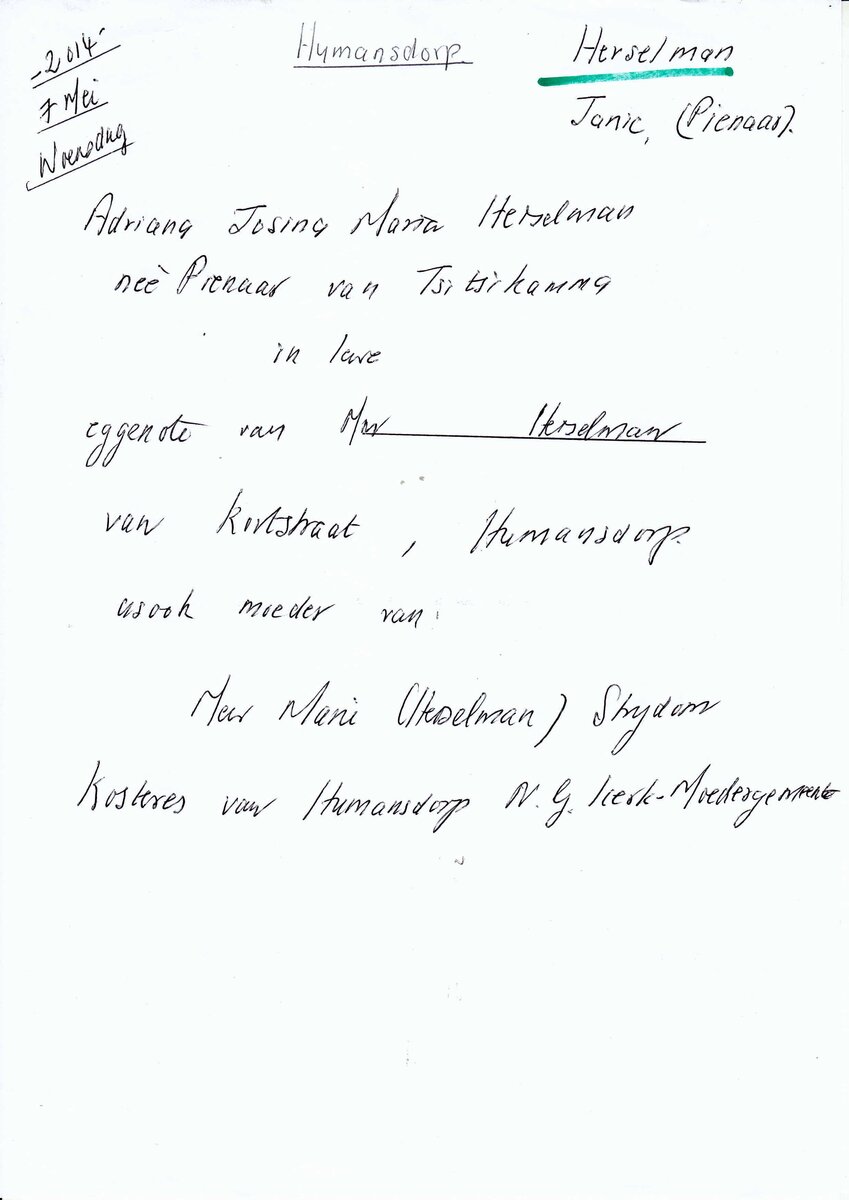 -2014-
7 Mei
Woensdag
Humansdorp.
Herselman
Janie, (Pienaar).
Adriana Josina Maria Herselman
neè Pienaar van Tsitsikamma
in lewe
eggenote van Mnr Herselman
van Kortstraat, Humansdorp.
asook moeder van:
Mev Marie (Herselman) Strydom
Kosteres van Humansdorp N.G. Kerk-Moedergemeente